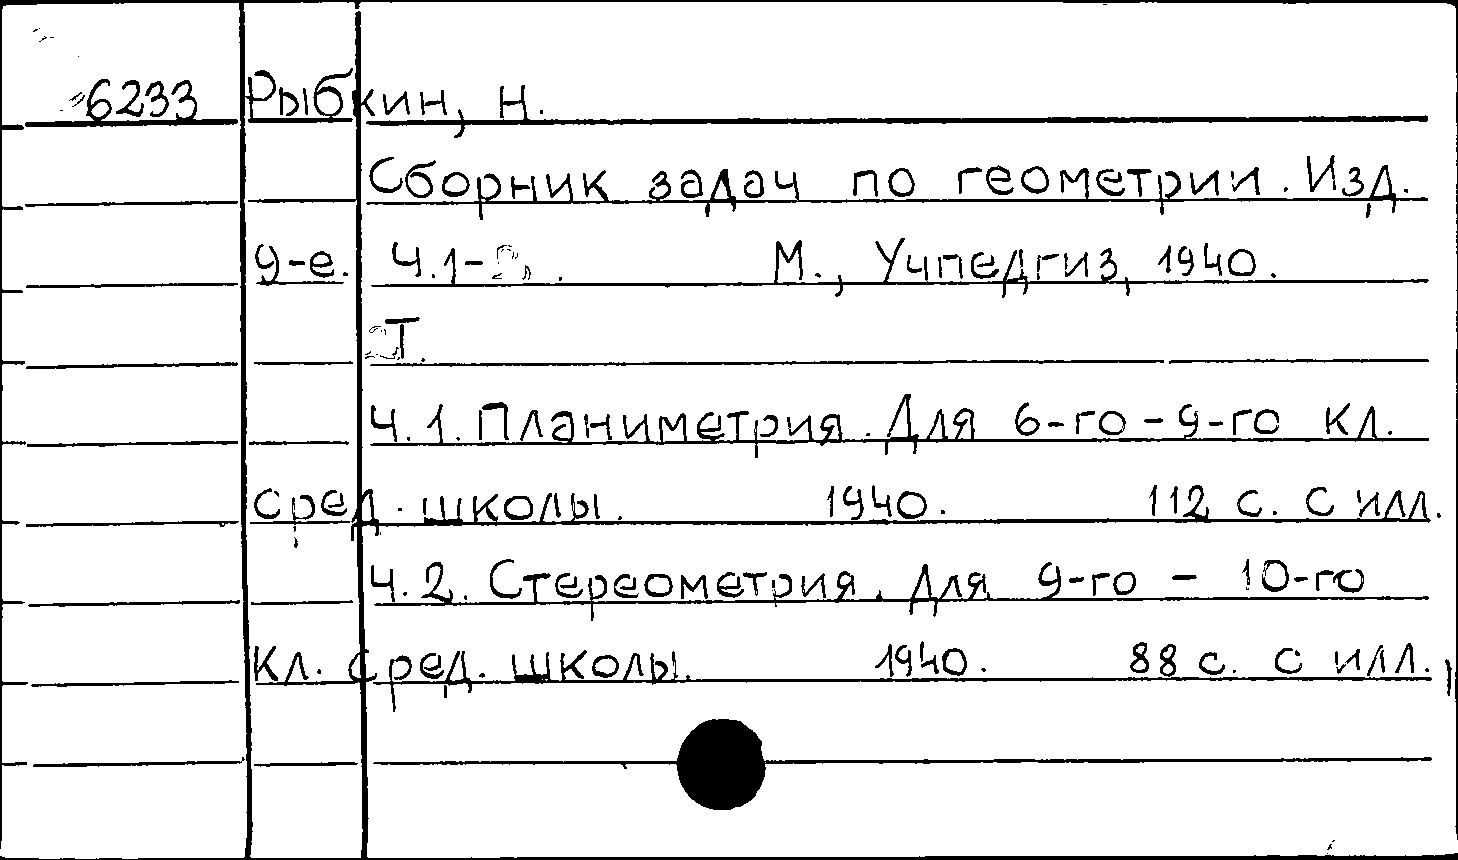 6233 Рыбкин, Н.
Сборник задач по геометрии. Изд.
9-е. Ч.1-2. М., Учпедгиз, 1940.
2Т.
Ч.1. Планиметрия. Для 6-го-9-го кл.
сред. школы. 1940. 112 с. с илл.
Ч.2. Стереометрия. Для 9-го - 10-го
кл. сред. школы. 1940. 88 с. с илл.,